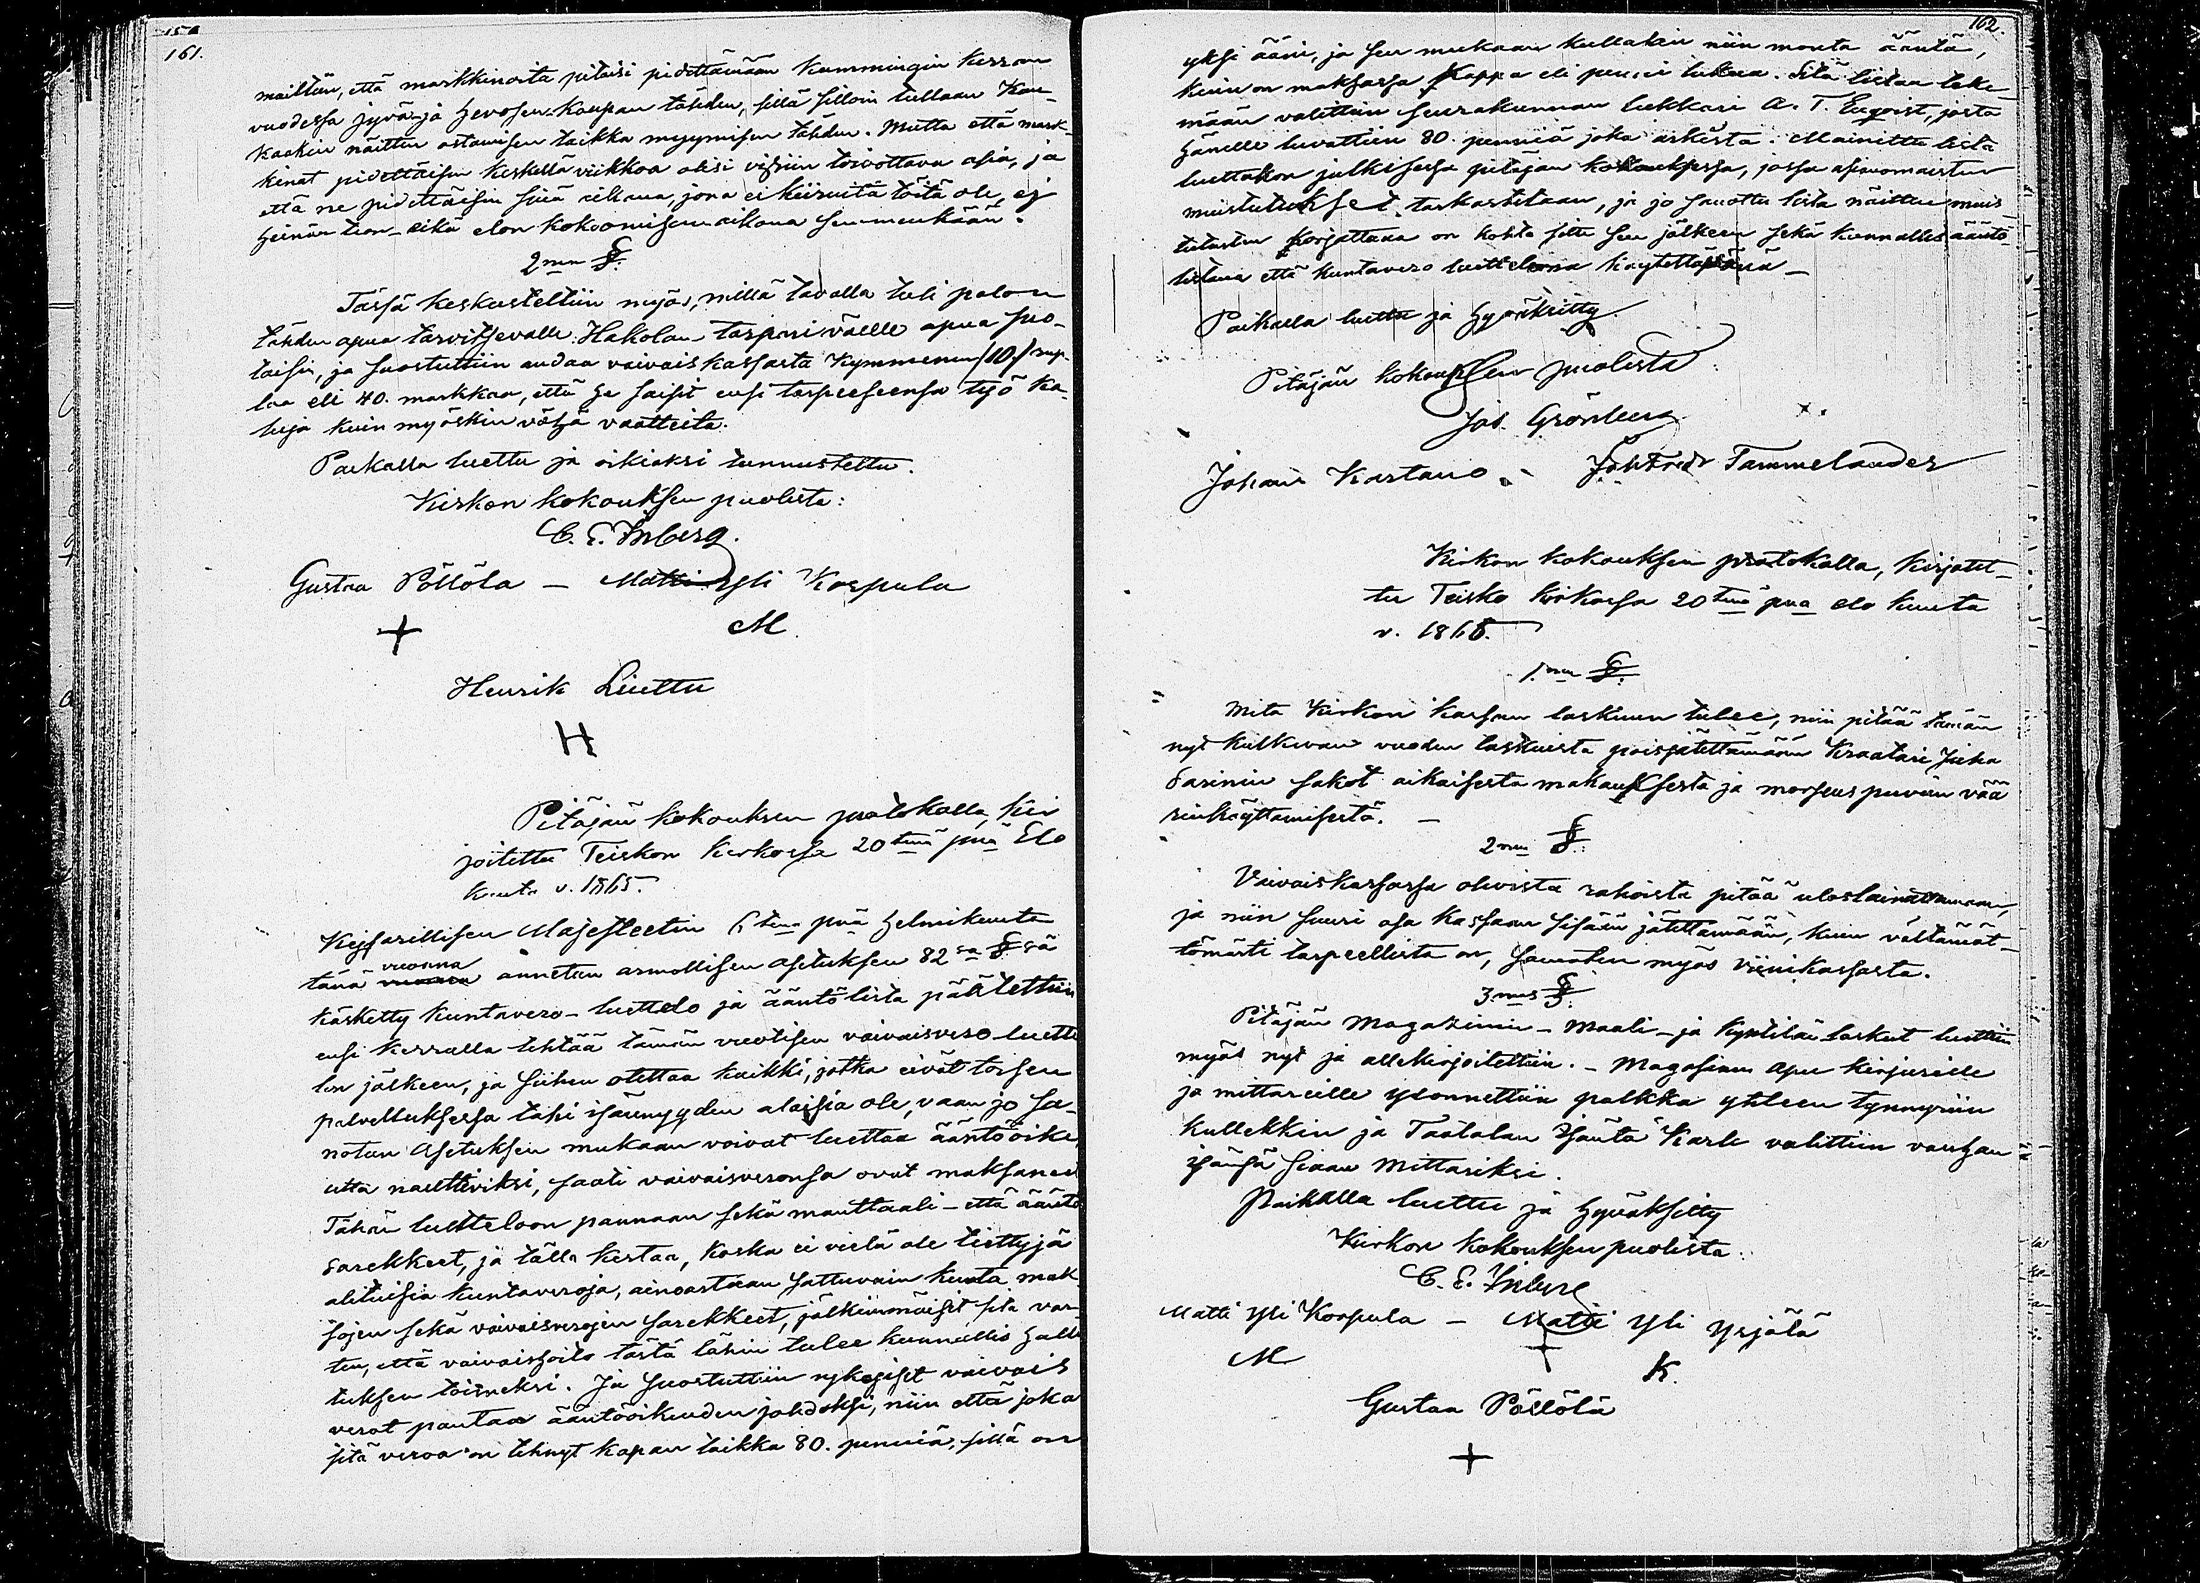 161.
maittiin, että markkinoita pitäisi pidettämään kummingin kerran
vuodessa jyvä- ja hevosen kaupan tähden, sillä silloin tullaan kau-
kaakin näitten ostamisen taikka myymisen tähden. Mutta että mark-
kinat pidettäisin keskellä viikkoa olisi toivottava asia, ja
että ne pidettäisin siiä aikana, jona ei kiiruita töitä ole, ej
heinän teon- eikä elon kokoomisen aikana sen menkään.
2nen §.
Tässä keskusteltiin myös, millä tavalla tuli palon
tähden apua tarvitsevalle Hakolan torpari väelle apua suo-
taisin, ja suostuttiin andaa vaivaiskassasta kymmenen (10.) rup-
laa eli 40. markkaa, että he saisit ensi tarpeeseensa työ ka-
luja kuin myöskin vähä vaatteita.
Paikalla luettu ja oikiaksi tunnustettu.
Kirkon kokouksen puolesta:
C. E. Inberg.
Gustaa Pöllölä – Matti Yli Korpula
+ M
Henrik Liuttu
H
Pitäjän kokouksen protokolla, kir
joitettu Teiskon kirkossa 20tenä pnä Elo
kuuta v. 1865.
Kejsarillisen Majesteetin 6tena pnä helmikuuta
tänä vuonna annetun armollisen asetuksen 82sa § sä
käsketty kuntavero-luettelo ja ääntölista päätettiin
ensi kerralla tehtää tämän vuotisen vaivaisvero luette
lon jälkeen, ja siihen otettaa kaikki, jotka eivät toisen
palvelluksessa tahi isännyyden alaisia ole, vaan jo sa-
notun Asetuksen mukaan voivat luettaa ääntöoike
utta nauttiviksi, saati vaivaisveronsa ovat maksaneet
Tähän luetteloon pannaan sekä manttaali- että ääntö
sarekkeet, ja tällä kertaa, koska ei vielä ole tiettyjä
alituisia kuntaveroja, ainoastaan sattuvain kunta mak
sojen sekä vaivaisverojen sarekkeet, jälkimmäiset sitä var
ten, että vaivaishoito tästä lähin tulee kunnallis halli
tuksen toimeksi. Ja suostuttiin nykyiset vaivais
verot pantaa ääntöoikeuden johdoksi, niin että joka
sitä veroa on tehnyt kapan taikka 80. penniä, sillä on
162.
yksi ääni, ja sen mukaan kullakin niin monta ääntä,
kuin on maksossa kappa eli penni lukua. Sitä listaa teke-
mään valittiin seurakunnan lukkari A. T. Engvist, josta
hänelle luvattiin 80. penniä joka arkista. Mainittu lista
luettakon julkisessa pitäjän kokouksessa, jossa asianomaisten
muistutukset tarkastetaan, ja jo sanottu lista näitten muis
tutusten korjattava on kohta sitte sen jälkeen sekä kunnallis ääntö
listana että kuntavero luettelona käytettävänä –
Paikalla luettu ja hyväksitty.
Pitäjän kokouksen puolesta:
Jos. Grönberg.
Johan Kartano. Joh Fredr Tammelander
Kirkon kokouksen protokolla, kirjotet-
tu Teisko kirkossa 20tenä pnä elo kuuta
v. 1865.
1nen §.
Mitä kirkon kassan laskuun tulee, niin pitää tämän
nyt kulkevan vuoden laskuista poisjätettämään Kraatari Juha
Sarinin sakot aikaisesta makauksesta ja morsius puvun vää
rinkäyttämisestä. –
2nen §.
Vaivaiskassassa olevista rahoista pitää uloslainattaman,
ja niin suuri osa kassaan sisään jätettämään, kuin välttämät-
tömästi tarpeellista on, samaten myös viinikassasta.
3mas §.
Pitäjän Magazinin- maali- ja kyntilän laskut luettiin
myös nyt ja allekirjoitettiin. – Magasinin apu kirjurille
ja mittareille ylönnettiin palkka yhteen tynnyriin
kullekkin ja Taatalan isäntä Karle valittiin vanhan
isänsä siaan Mittariksi.
Paikalla luettu ja hyväksitty
Kirkon kokouksen puolesta:
C. E. Inberg
Matti Yli Korpula – Matti Yli Yrjölä
M + K.
Gustaa Pöllölä
+